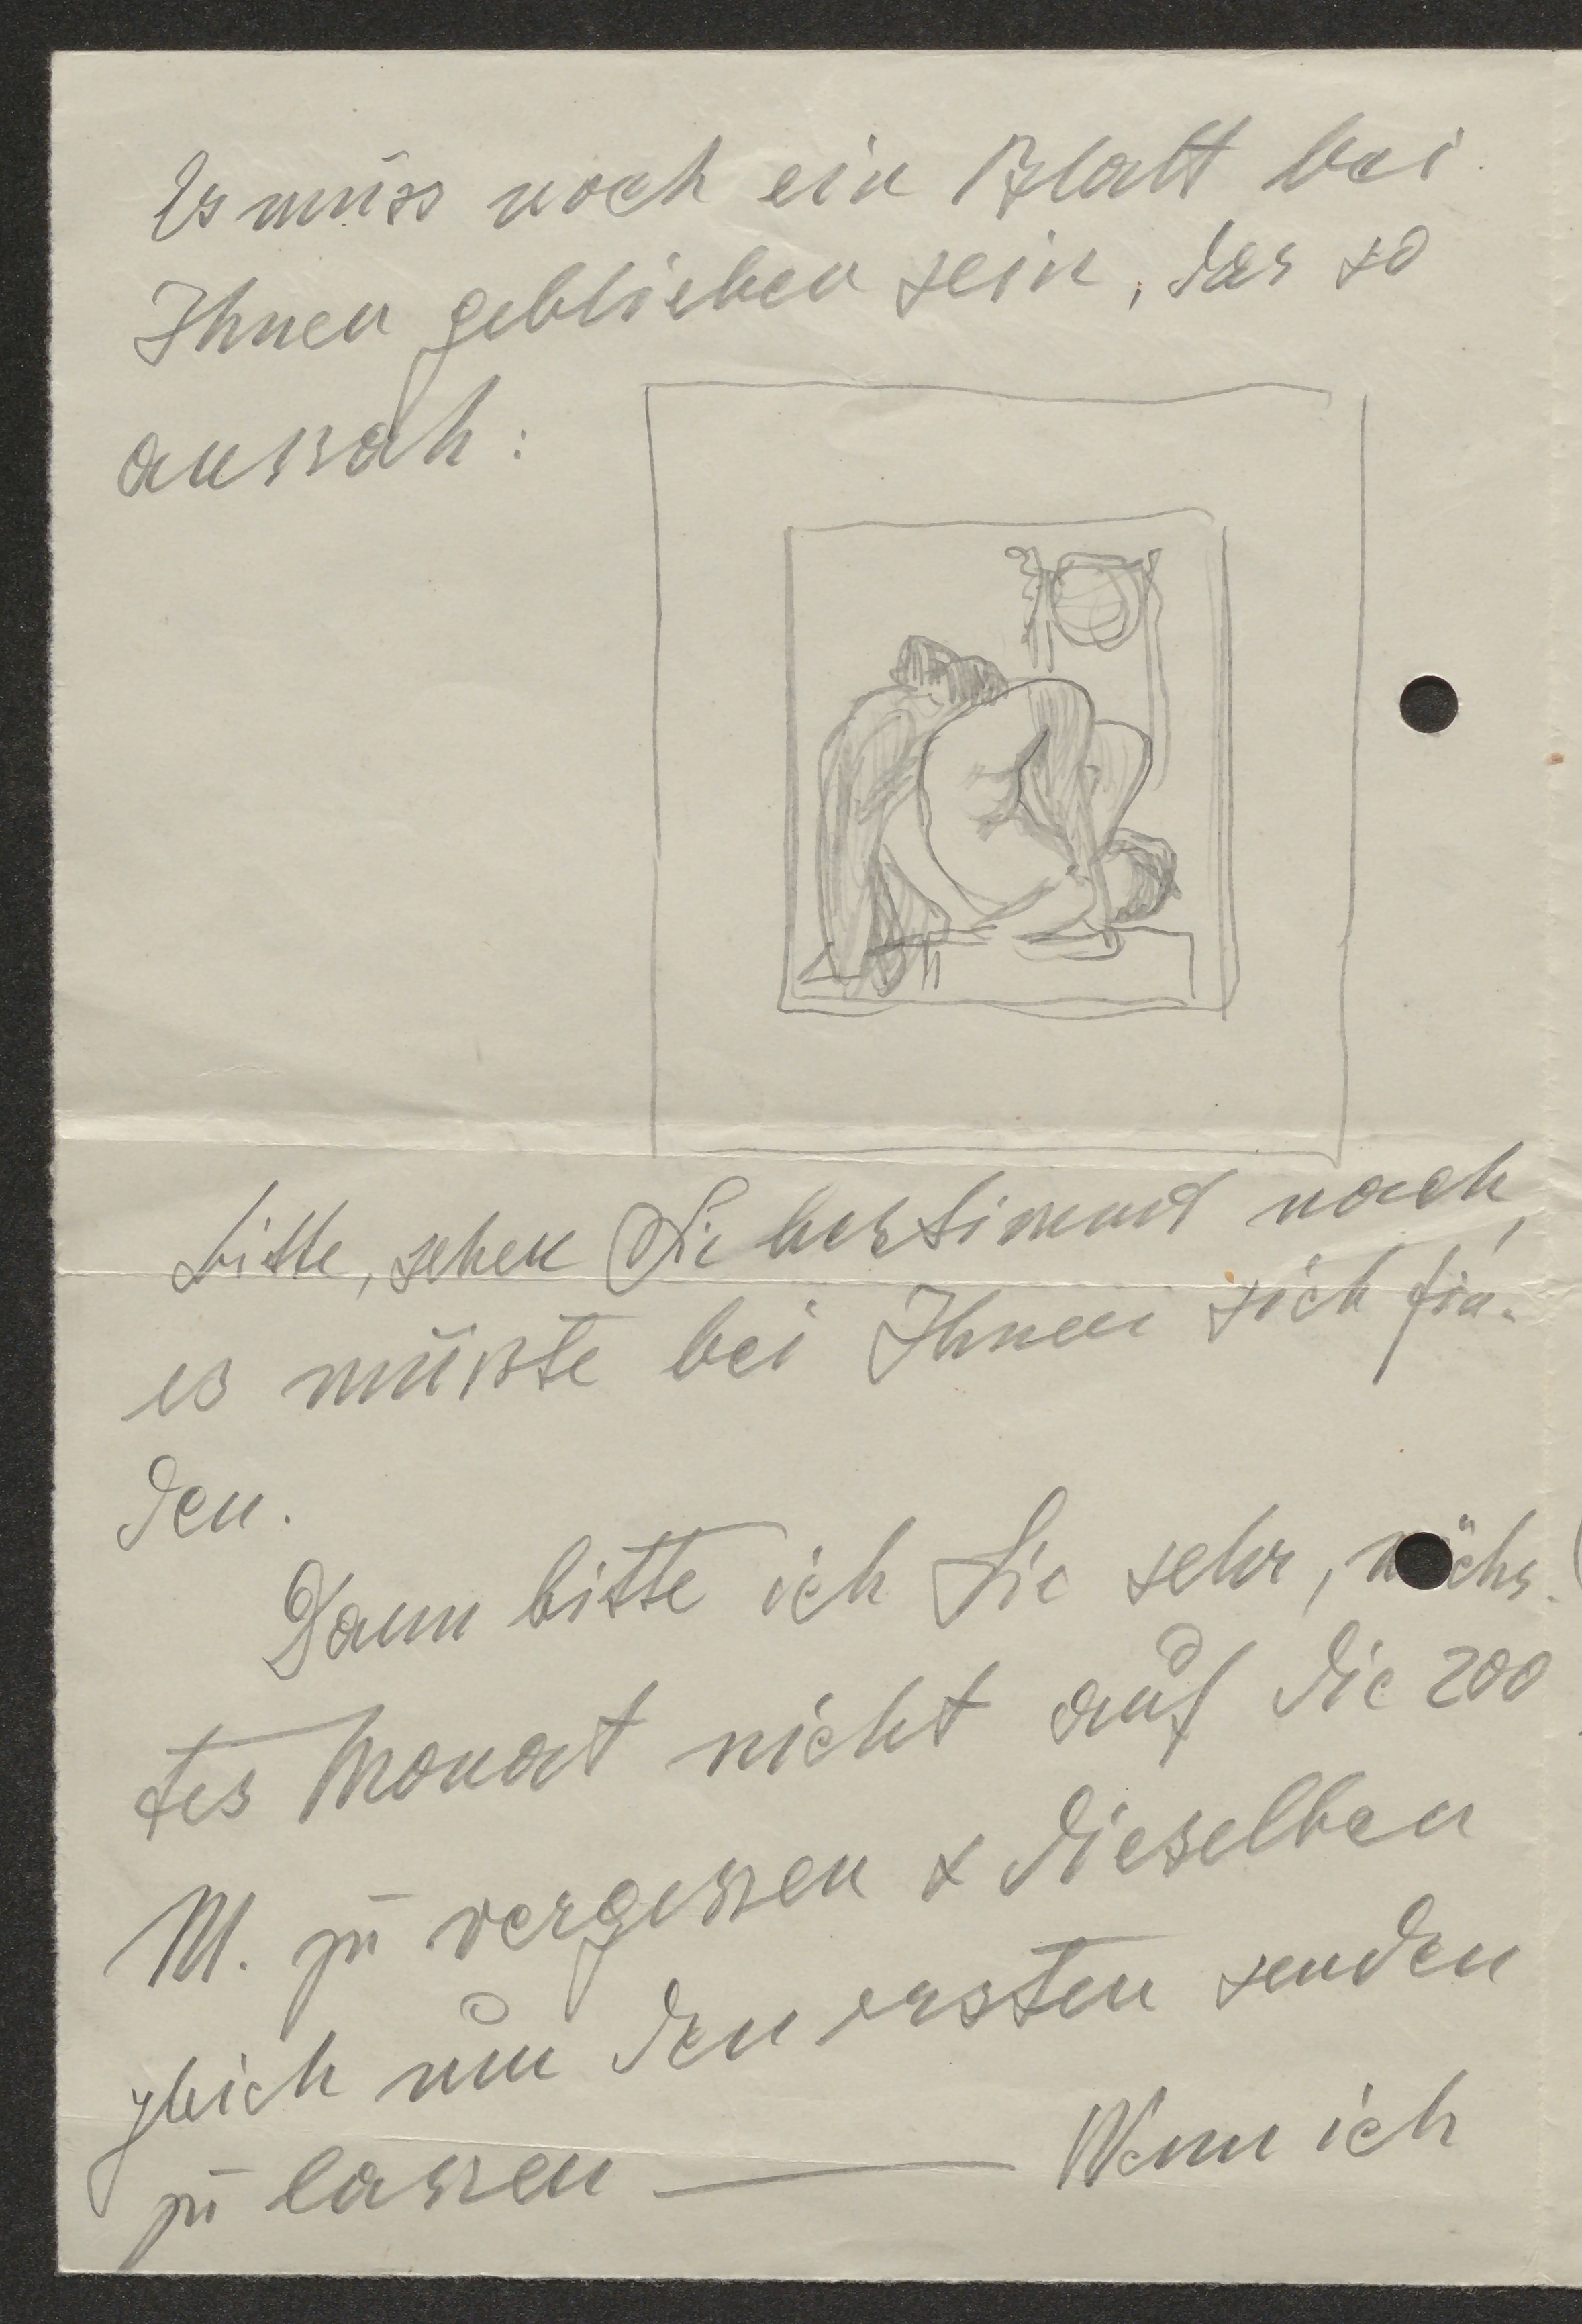 Es muss noch ein Blatt bei
Ihnen geblieben sein, das so
aussah:
bitte, sehen Sie bestimmt nach,
es müsste bei Ihnen sich fin-
den.
Dann bitte ich Sie sehr, nächs-
tes Monat nicht auf die 200
M. zu vergessen & dieselben
gleich um den ersten senden
zu lassen — Wenn ich